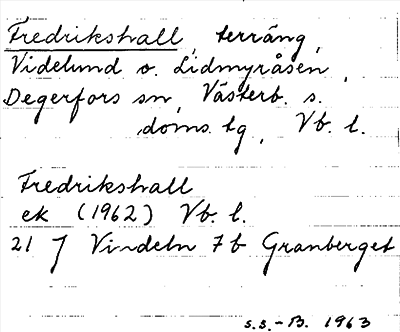 Fredrikshall, terräng,
Videlund o. Lidmyråsen,
Degerfors sn, Västerb. s.
doms. tg, Vb. l.
Fredrikshall
ek (1962) Vb. l.
21 J Vindeln 7b Granberget
S.S.-B. 1963